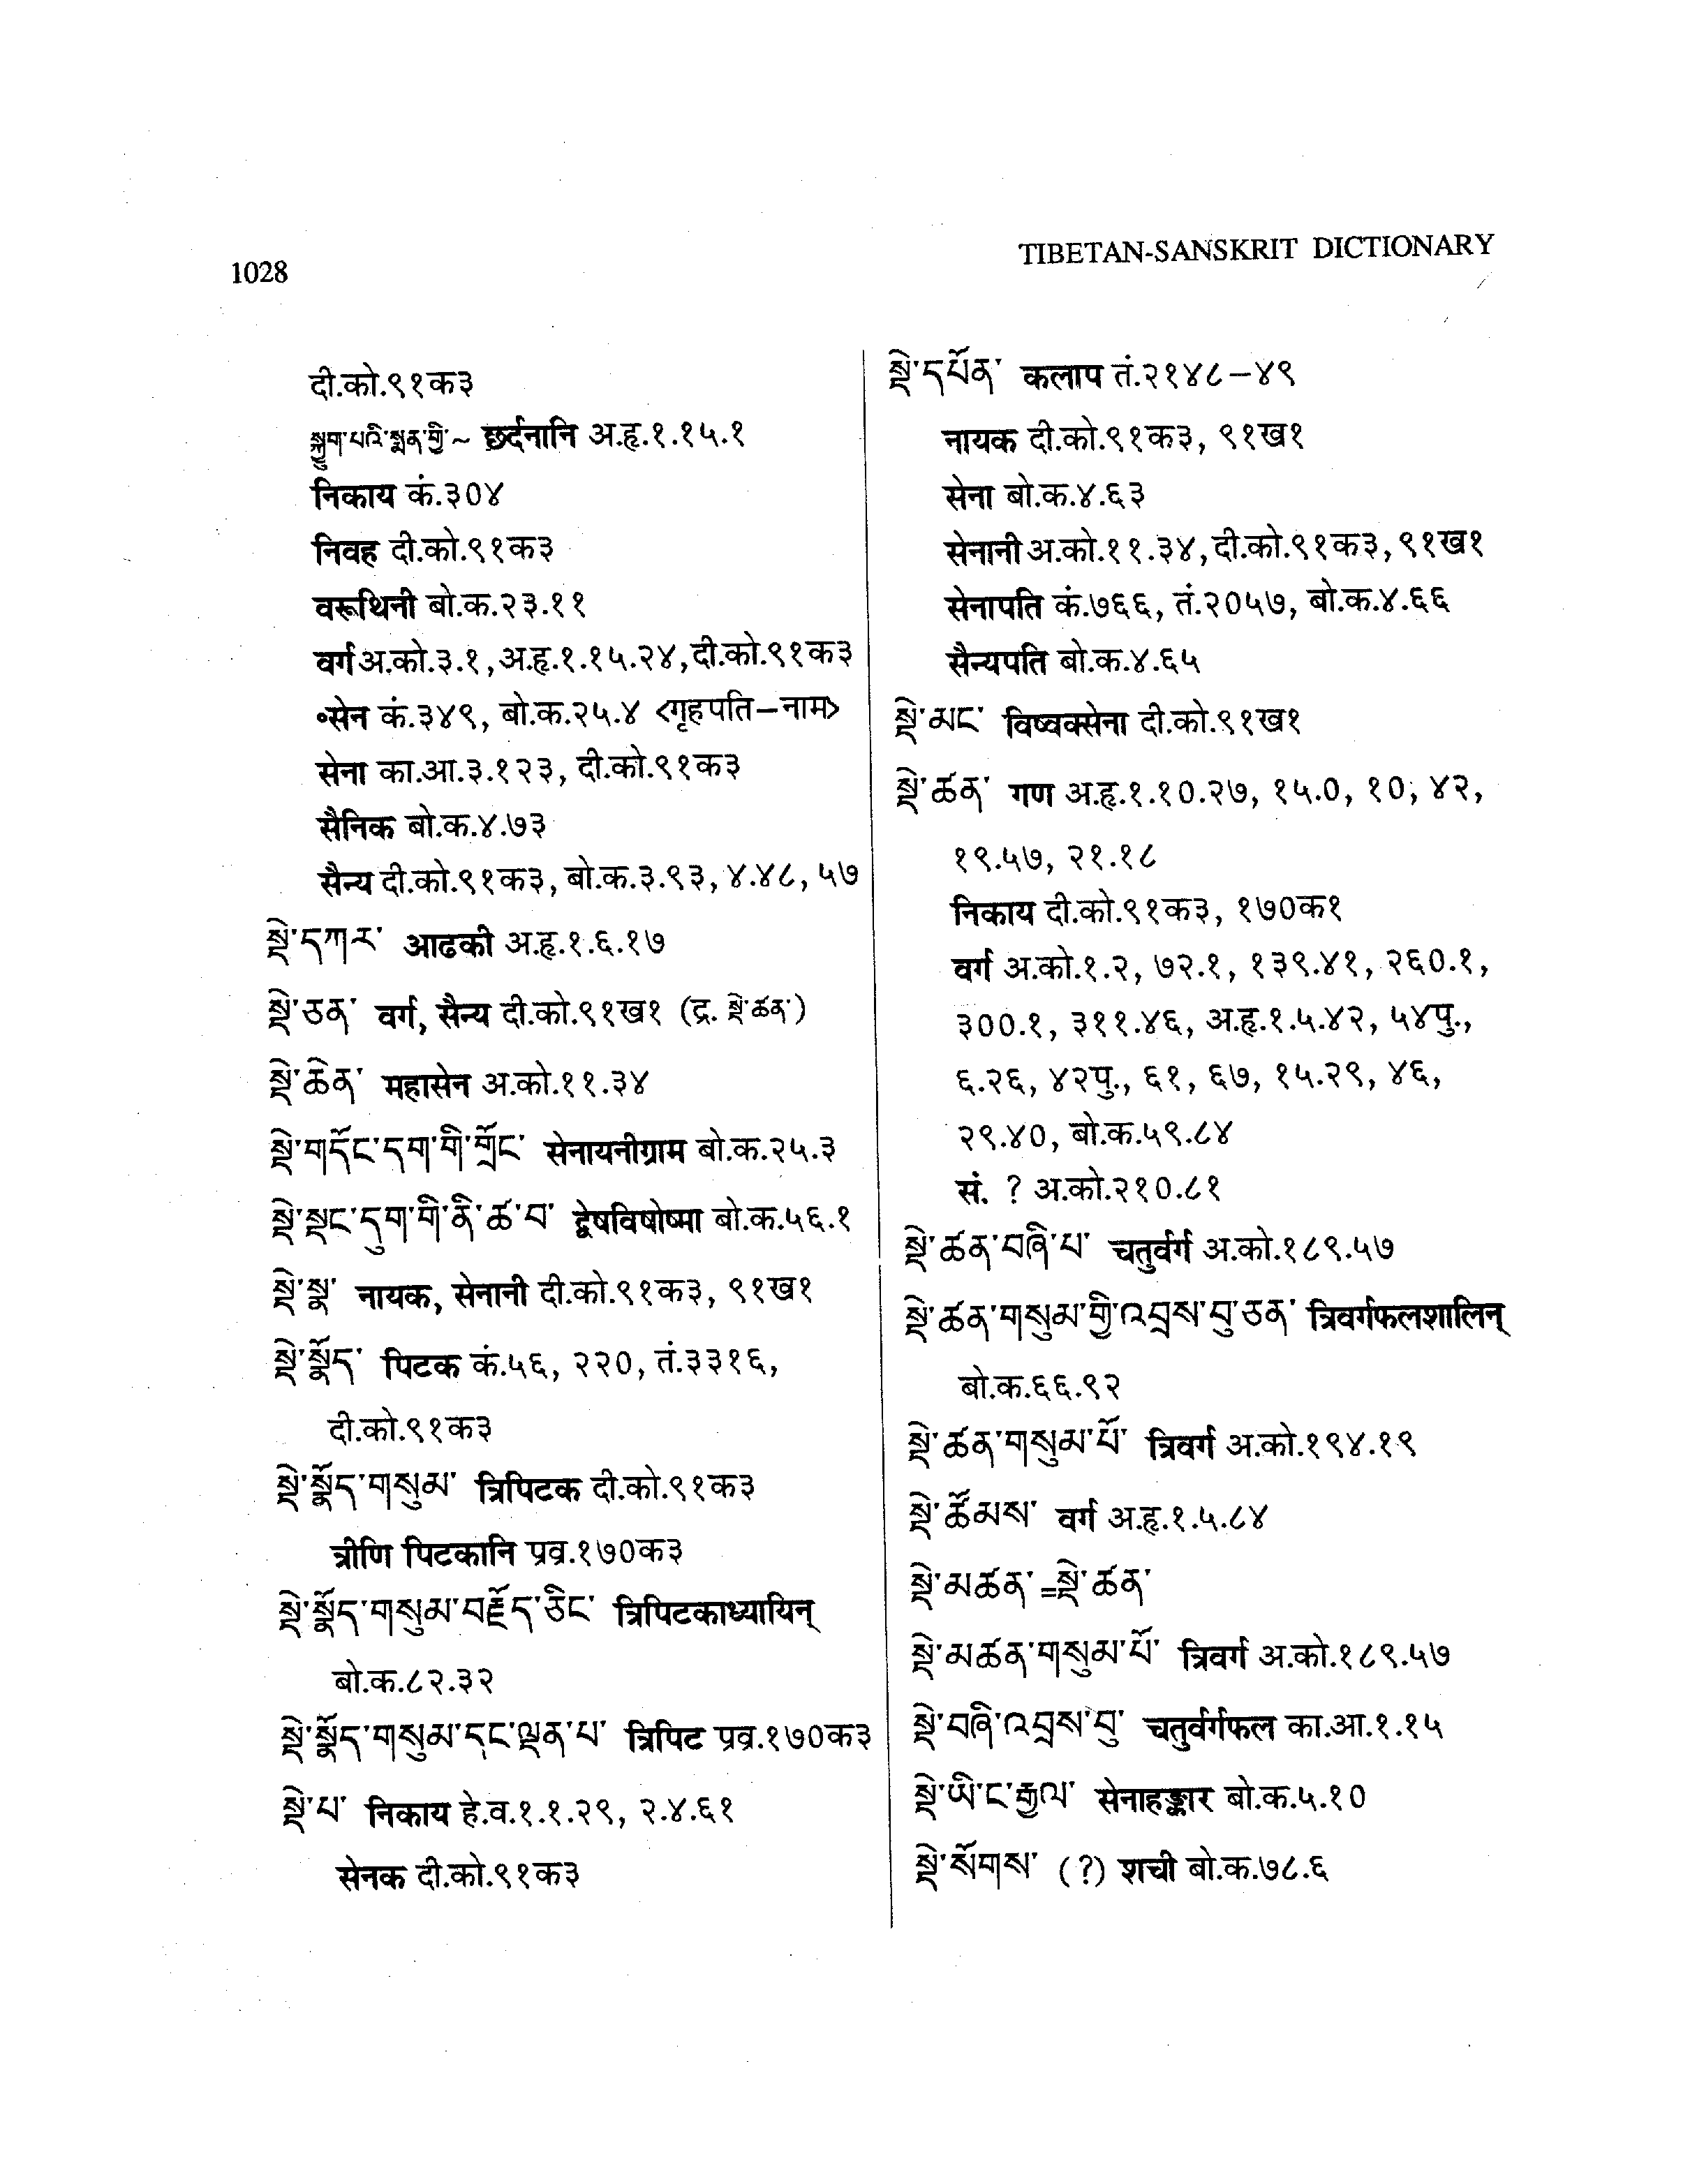 1028
TIBETAN-SANSKRIT DICTIONARY
दी.को.९१क३
སྐྱུག་པའི་སྨན་གྱི་~ छर्दनानि अ.हृ.१.१५.१
निकाय कं.३०४
निवह दी.को.९१क३
वरूथिनी बो.क.२३.११
वर्ग अ.को.३.१, अ.हृ.१.१५.२४, दी.को.९१क३
॰सेन कं.३४९, बो.क.२५.४ <गृहपति-नाम>
सेना का.आ.३.१२३, दी.को.९१क३
सैनिक बो.क.४.७३
सैन्य दी.को.९१क३, बो.क.३.९३, ४.४८, ५७
སྡེ་དཀར་ आढकी अ.हृ.१.६.१७
སྡེ་ཅན་ वर्ग, सैन्य दी.को.९१ख१ (द्र. སྡེ་ཚན་)
སྡེ་ཆེན་ महासेन अ.को.११.३४
སྡེ་གདོང་དག་གི་གྲོང་ सेनायनीग्राम बो.क.२५.३
སྡེ་སྡང་དུག་གི་ནི་ཚ་བ་ द्वेषविषोष्मा बो.क.५६.१
སྡེ་སྣ་ नायक, सेनानी दी.को.९१क३, ९१ख१
སྡེ་སྣོད་ पिटक कं.५६, २२०, तं.३३१६,
दी.को.९१क३
སྡེ་སྣོད་གསུམ་ त्रिपिटक दी.को.९१क३
त्रीणि पिटकानि प्रव्र.१७०क३
སྡེ་སྣོད་གསུམ་བརྗོད་ཅིང་ त्रिपिटकाध्यायिन्
बो.क.८२.३२
སྡེ་སྣོད་གསུམ་དང་ལྡན་པ་ त्रिपिट प्रव्र.१७०क३
སྡེ་པ་ निकाय हे.व.१.१.२९, २.४.६१
सेनक दी.को.९१क३
སྡེ་དཔོན་ कलाप तं.२१४८-४९
नायक दी.को.९१क३, ९१ख१
सेना बो.क.४.६३
सेनानी अ.को.११.३४, दी.को.९१क३, ९१ख१
सेनापति कं.७६६, तं.२०५७, बो.क.४.६६
सैन्यपति बो.क.४.६५
སྡེ་མང་ विष्वक्सेना दी.को.९१ख१
སྡེ་ཚན་ गण अ.हृ.१.१०.२७, १५.०, १०, ४२,
१९.५७, २१.१८
निकाय दी.को.९१क३, १७०क१
वर्ग अ.को.१.२, ७२.१, १३९.४१, २६०.१,
३००.१, ३११.४६, अ.हृ.१.५.४२, ५४पु.,
६.२६, ४२पु., ६१, ६७, १५.२९, ४६,
२९.४०, बो.क.५९.८४
सं. ? अ.को.२१०.८१
སྡེ་ཚན་བཞི་པ་ चतुर्वर्ग अ.को.१८९.५७
སྡེ་ཚན་གསུམ་གྱི་འབྲས་བུ་ཅན་ त्रिवर्गफलशालिन्
बो.क.६६.९२
སྡེ་ཚན་གསུམ་པོ་ त्रिवर्ग अ.को.१९४.१९
སྡེ་ཚོམས་ वर्ग अ.हृ.१.५.८४
སྡེ་མཚན་=སྡེ་ཚན་
སྡེ་མཚན་གསུམ་པོ་ त्रिवर्ग अ.को.१८९.५७
སྡེ་བཞི་འབྲས་བུ་ चतुर्वर्गफल का.आ.१.१५
སྡེ་ཡི་ང་རྒྱལ་ सेनाहङ्कार बो.क.५.१०
སྡེ་སོགས་ (?) शची बो.क.७८.६